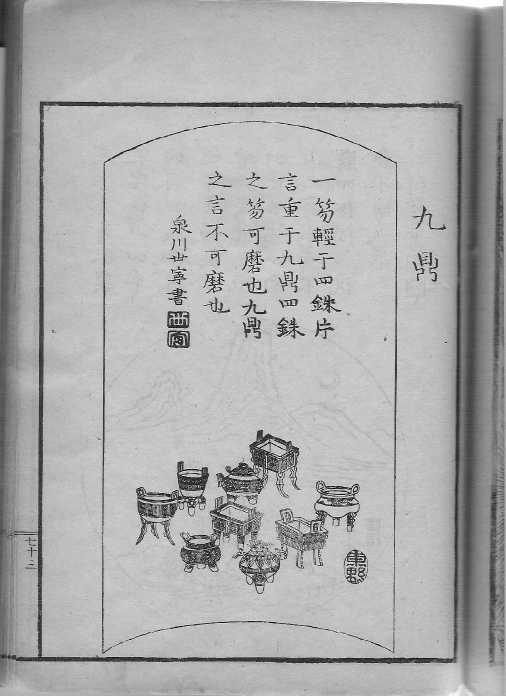 九鼎
一笏輕于四銖片
言重于九鼎四銖
之笏可磨也九鼎
之言不可磨也
泉川世寧書
七十二